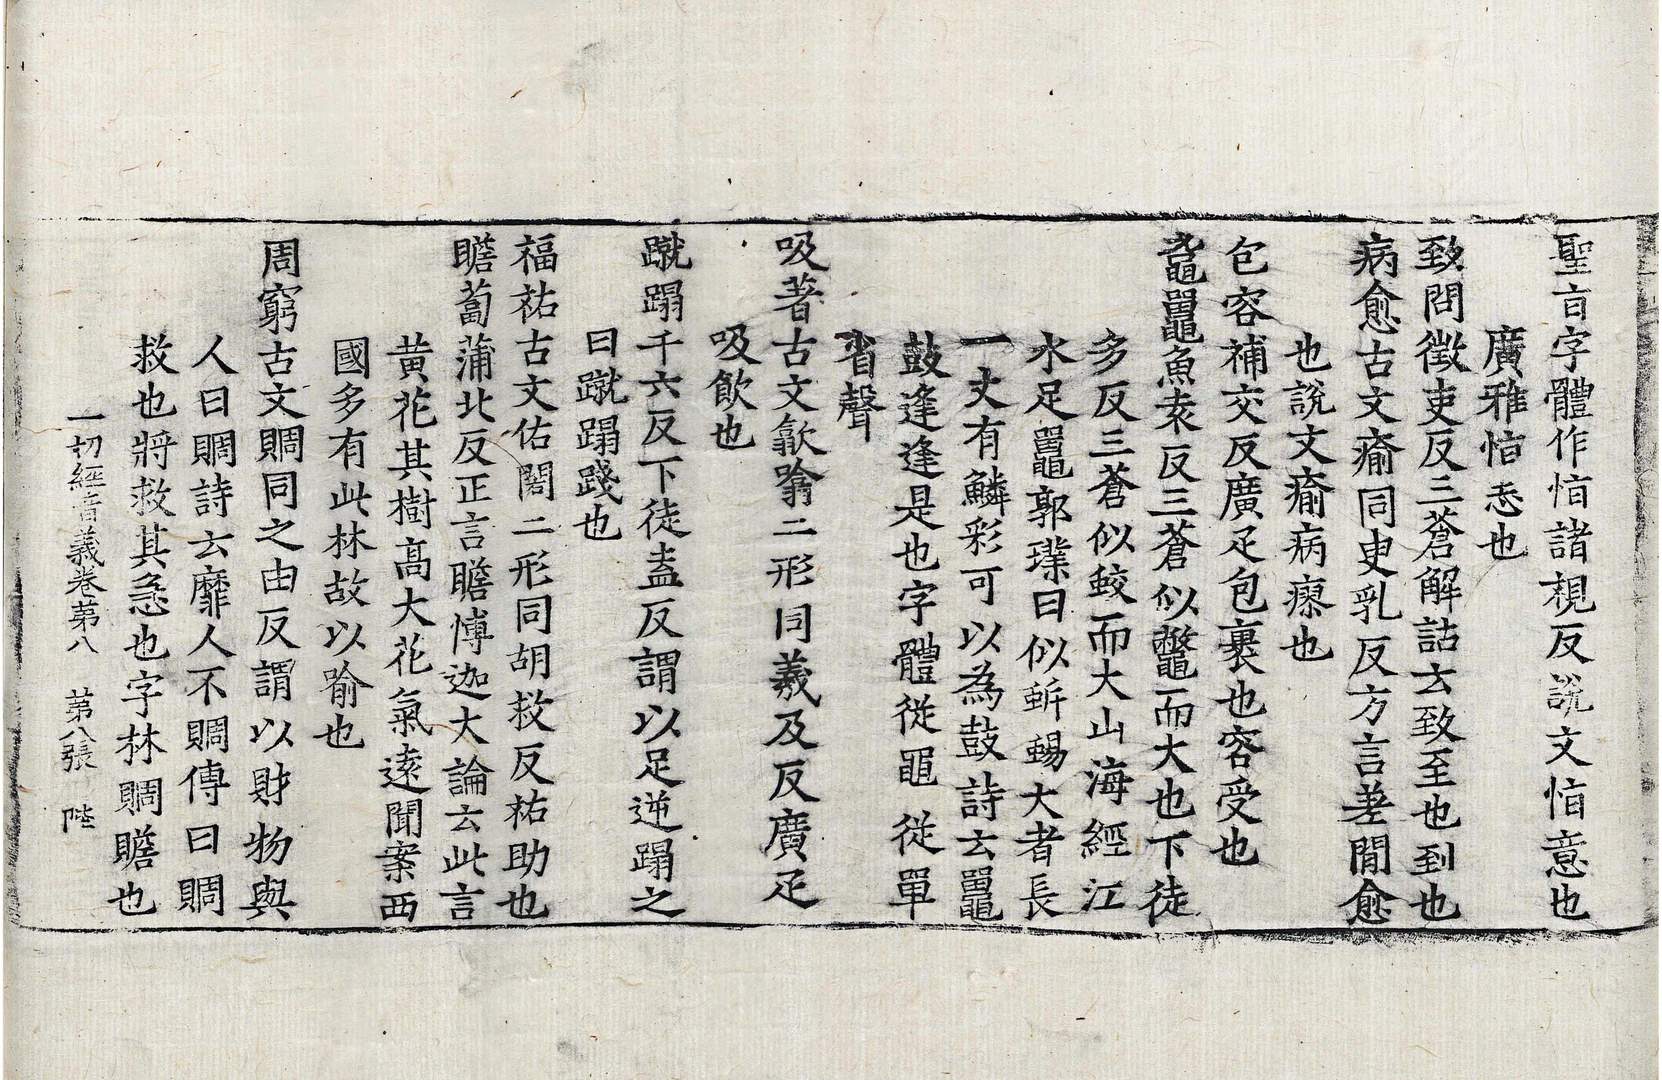 聖𭥍字體作恉諸視反說文恉意也
廣雅恉志也
致問徵吏反三蒼解詁云致至也到也
病愈古文瘉同臾乳反方言差閒愈
也說文瘉病瘳也
包容補交反廣疋包裹也容受也
黿鼉魚袁反三蒼似鼈而大也下徒
多反三蒼似蛟而大山海經江
水足鼉郭璞曰似蜥蜴大者長
一丈有鱗彩可以為鼓詩云鼉
鼓逢逢是也字體從黽從單
省聲
吸著古文歙噏二形同羲及反廣疋
吸飲也
蹴蹋千六反下徒盍反謂以足逆蹋之
曰蹴蹋踐也
福祐古文佑閤二形同胡救反祐助也
瞻蔔蒲北反正言瞻博迦大論云此言
黃花其樹高大花氣遠聞案西
國多有此林故以喻也
周窮古文賙同之由反謂以財物與
人曰賙詩云靡人不賙傳曰賙
救也將救其急也字林賙贍也
一切經音義卷第八　第八張　陛